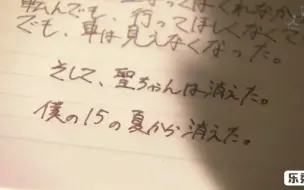 転んでも、行ってほしくなくて
でも、車は見えなくなった。
そして、聖ちゃんは消えた。
僕の15の夏から消えた。